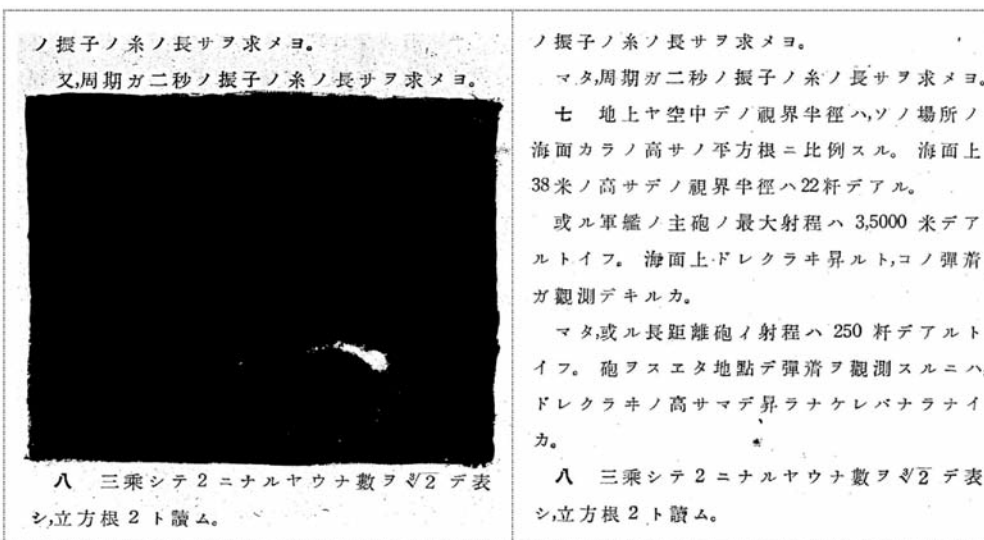 ノ振子ノ糸ノ長サヲ求メヨ。
又,周期ガ二秒ノ振子ノ糸ノ長サヲ求メヨ。
八 三乘シテ 2 ニナルヤウナ數ヲ ∛2 デ表
シ,立方根 2 ト讀ム。
ノ振子ノ糸ノ長サヲ求メヨ。
マタ,周期ガ二秒ノ振子ノ糸ノ長サヲ求メヨ。
七 地上ヤ空中デノ視界半徑ハ,ソノ場所ノ
海面カラノ高サノ平方根ニ比例スル。 海面上
38米ノ高サデノ視界半徑ハ22粁デアル。
或ル軍艦ノ主砲ノ最大射程ハ 3,5000 米デア
ルトイフ。 海面上ドレクラヰ昇ルト,コノ彈着
ガ觀測デキルカ。
マタ,或ル長距離砲ィ射程ハ 250 粁デアルト
イフ。 砲ヲスヱタ地點デ彈着ヲ觀測スルニハ,
ドレクラヰノ高サマデ昇ラナケレバナラナイ
カ。
八 三乘シテ 2 ニナルヤウナ數ヲ ∛2 デ表
シ,立方根 2 ト讀ム。